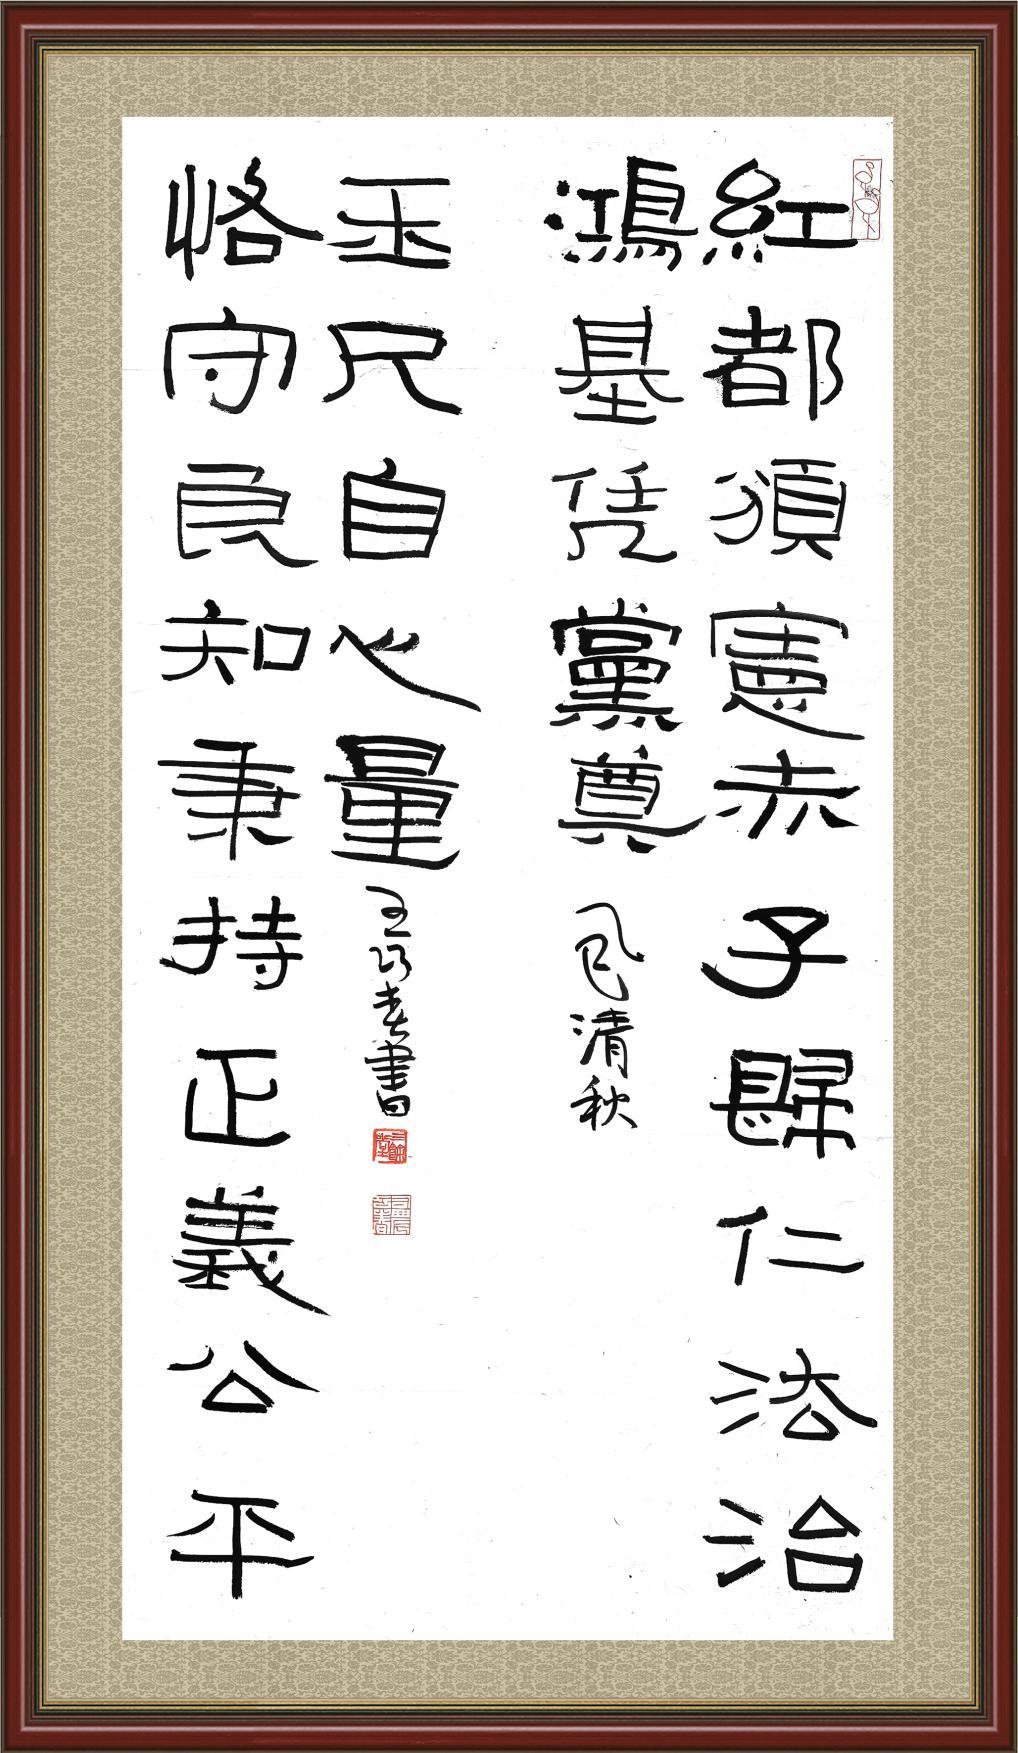 紅都頒憲赤子歸仁法治
鴻基凭黨奠
乙巳清秋
恪守良知秉持正義公平
玉尺自心量
王巧春書